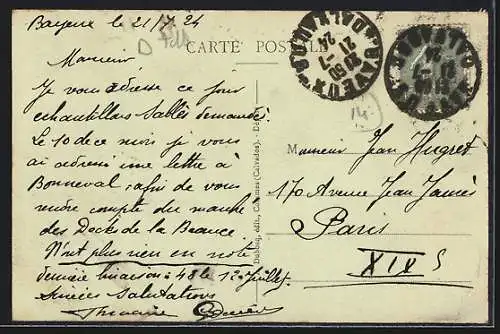 Bayeux le 21/7 24
CARTE POSTALE
BAYEUX CALVADOS
21 -7
24
Monsieur
Je vous adresse ce jour
échantillons sablés demandés.
Le 10 de ce mois je vous
ai adressé une lettre à
Bonneval afin de vous
rendre compte du manché
des Docks de la Beauce
N'ont plus rien en note
dernière livraison à 48 le 12 Juillet.
Sincères Salutations
14
Monsieur Jean Hugret
170 Avenue Jean Jaurès
Paris
XIX